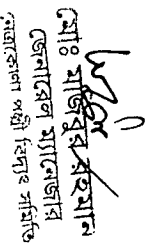 মোঃ মজিবুর রহমান
জেনারেল ম্যানেজার
নেত্রকোনা পল্লী বিদ্যুৎ সমিতি